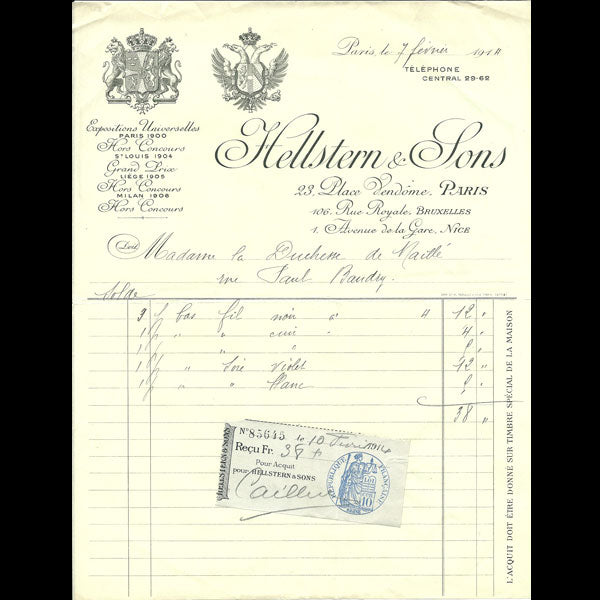 Paris, le 7 février 1914
TÉLÉPHONE
CENTRAL 29-62
Expositions Universelles
PARIS 1900
Hors Concours
St LOUIS 1904
Grand Prix
LIÈGE 1905
Hors Concours
MILAN 1906
Hors Concours
Hellstern & Sons
23, Place Vendôme, PARIS
106, Rue Royale, BRUXELLES
1, Avenue de la Gare, NICE
Doit
Madame la Duchesse de Maillé
rue Paul Baudry.
Solde
3 p bas fil noir à 4 12 "
1 p " " cuir " 4 "
1 p " " "
1 p " Soie violet 12 "
1 p " " blanc "
38 "
HELLSTERN & SONS
No 85645 le 10 Fevrier
Reçu Fr. 38
Pour Acquit
pour HELLSTERN & SONS
RÉPUBLIQUE FRANÇAISE
LOI
10
L'ACQUIT DOIT ÊTRE DONNÉ SUR TIMBRE SPÉCIAL DE LA MAISON